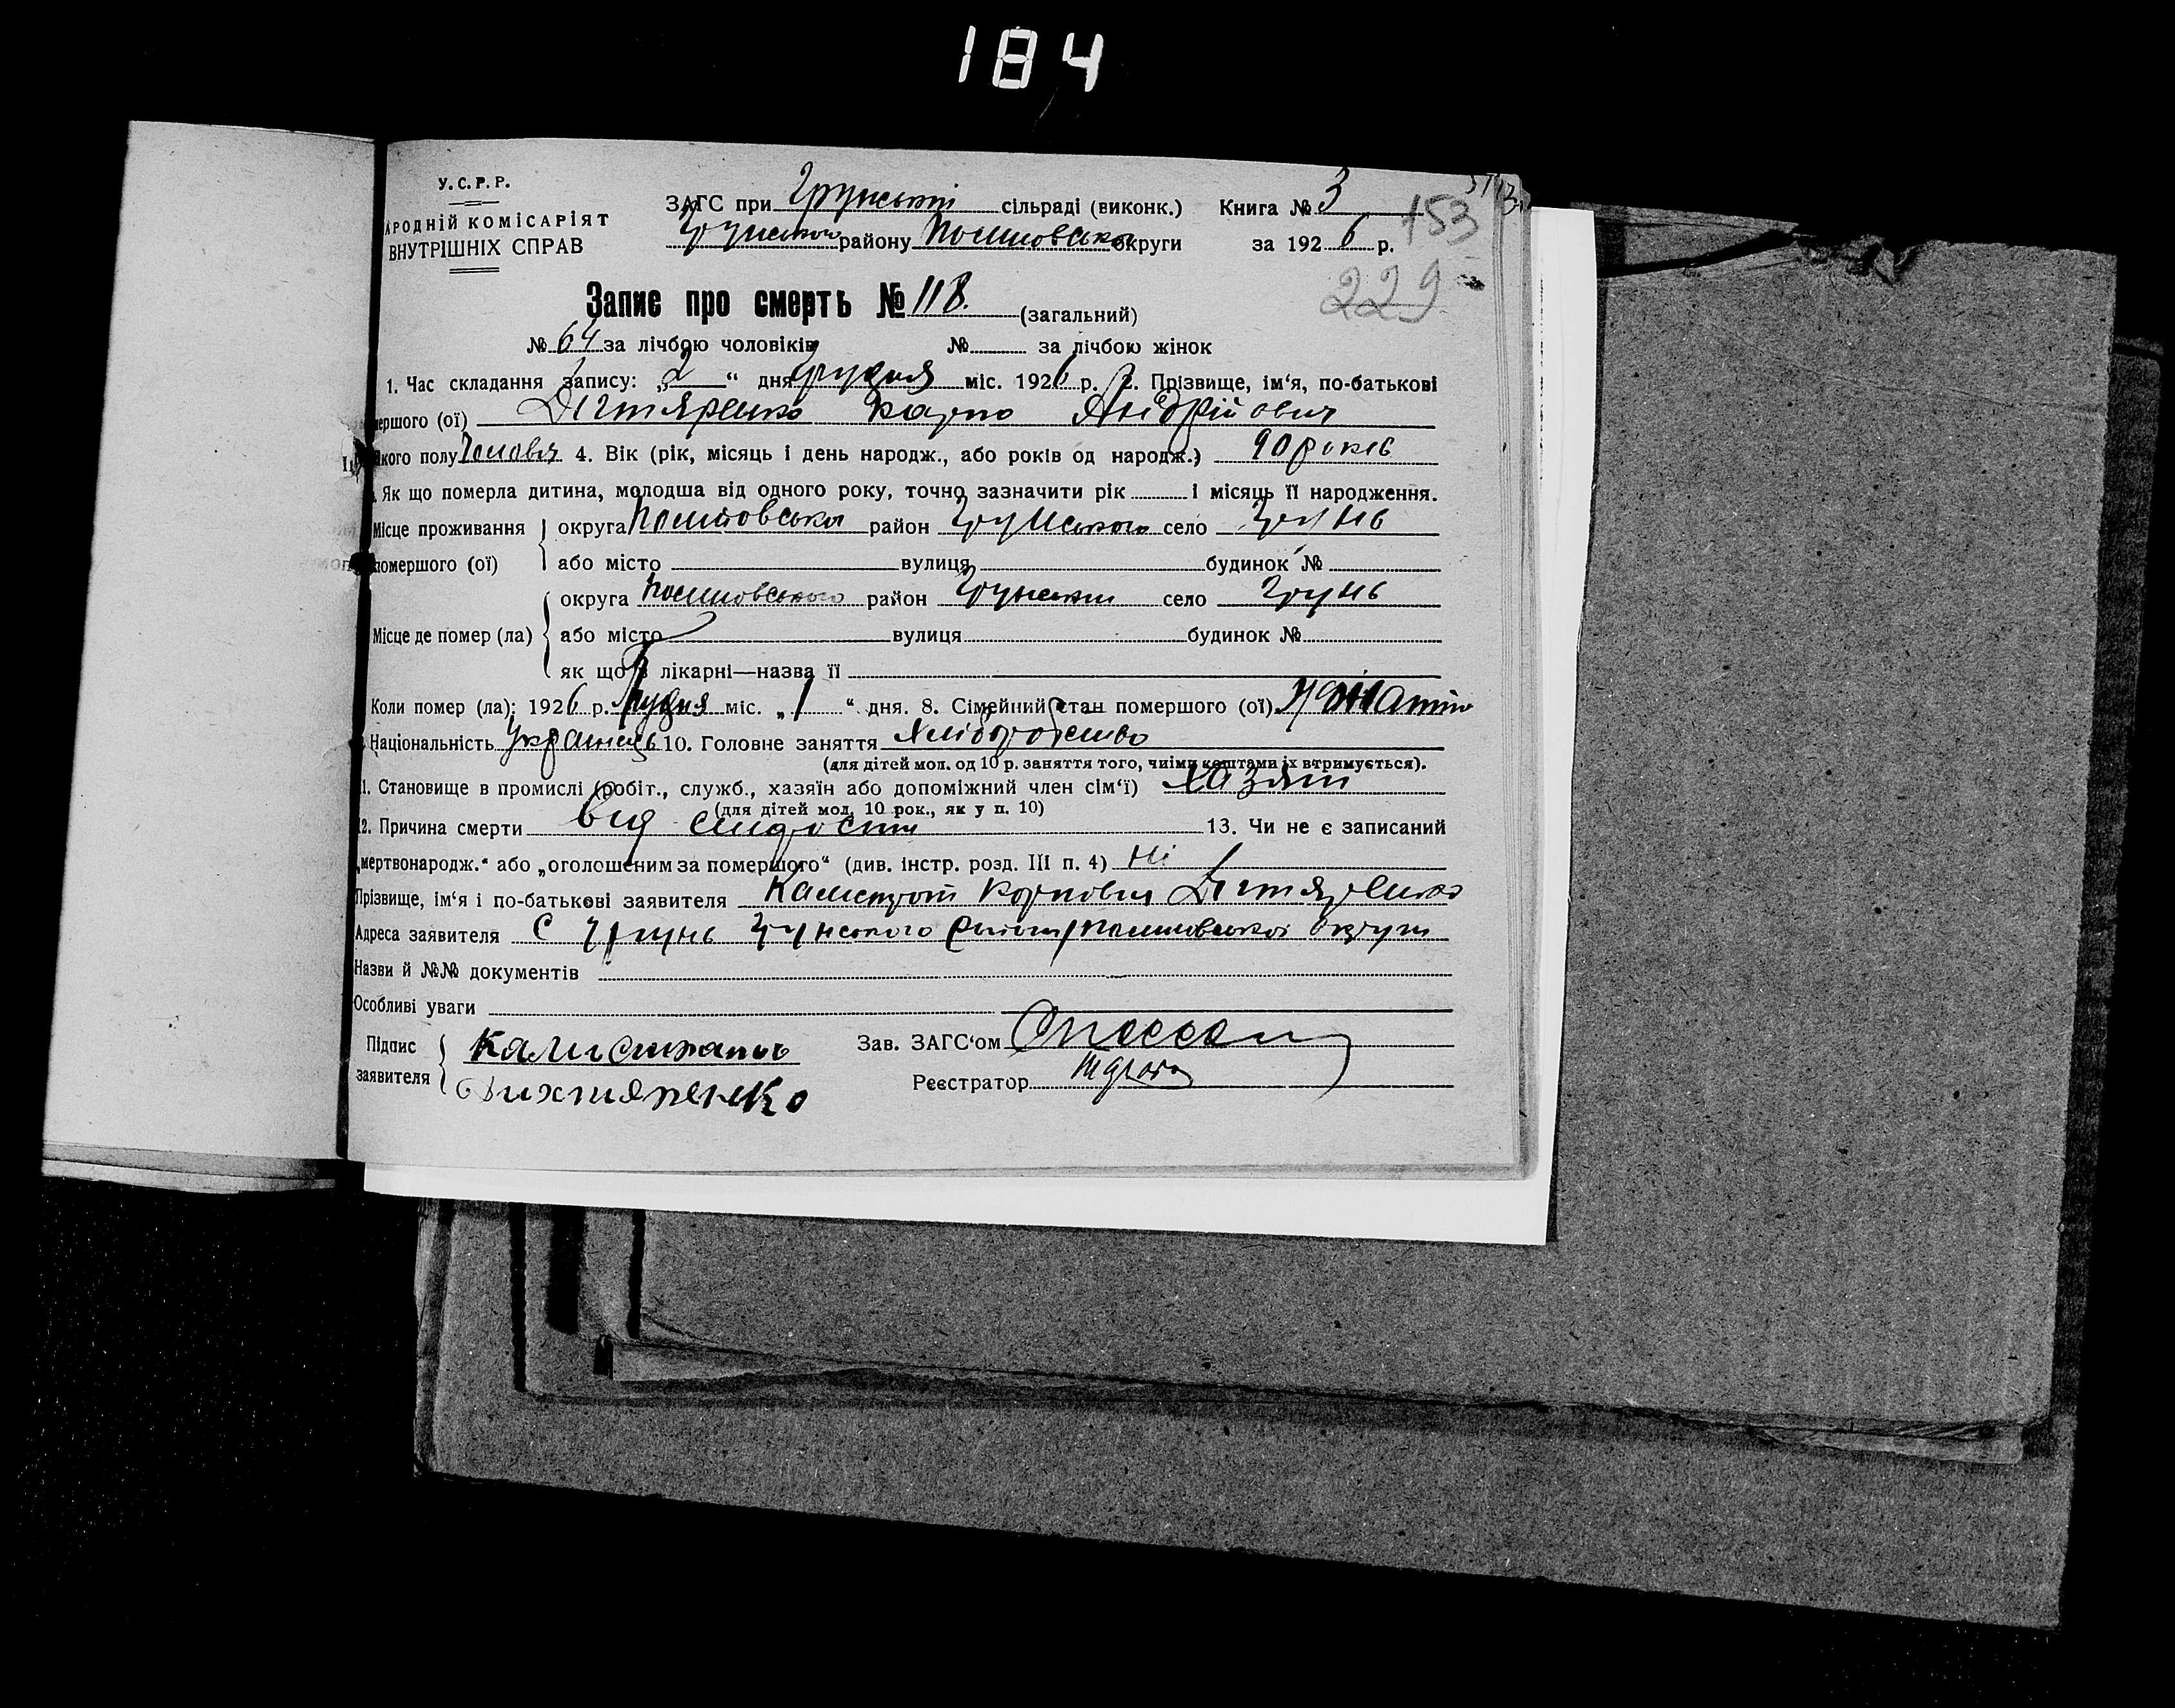 184
У.С.Р.Р.
АРОДНІЙ КОМІСАРІЯТ
ВНУТРІШНІХ СПРАВ
ЗАГС при Грунській сільраді (виконк.) Книга № 3
Грунського району Полтавської округи за 1926 р.
153
229
Запис про смерть № 118. (загальний)
№ 64 за лічбою чоловіків № за лічбою жінок
1. Час складання запису: „2“ дня Грудня міс. 1926 р. 2. Прізвище, ім‘я, по-батькові
мершого (ої) Дігтяренко Карпо Андрійович
якого полу Чоловіч 4. Вік (рік, місяць і день народж., або років од народж.) 90 років
Як що померла дитина, молодша від одного року, точно зазначити рік і місяць її народження.
Місце проживання округа Полтовська район Грунського село Грунь
помершого (ої) або місто вулиця будинок №
округа Полтовського район Грунський село Грунь
Місце де помер (ла) або місто вулиця будинок №
як що в лікарні—назва її
Коли помер (ла): 1926 р. Грудня міс. „1“ дня. 8. Сімейний стан помершого (ої) Жонатий
Національність Українець 10. Головне заняття Хліборобство
(для дітей мол. од 10 р. заняття того, чиїми коштами їх втримується).
1. Становище в промислі (робіт., служб., хазяїн або допоміжний член сім‘ї) Хазяїн
(для дітей мол. 10 рок., як у п. 10)
12. Причина смерти Від старости 13. Чи не є записаний
„мертвонародж.“ або „оголошеним за помершого“ (див. інстр. розд. III п. 4) Ні
Прізвище, ім‘я і по-батькові заявителя Калістрат Карпович Дігтяренко
Адреса заявителя С Грунь Грунського району Полтовської округи
Назви й №№ документів
Особливі уваги
Підпис Калистратъ Зав. ЗАГС‘ом
заявителя Дихтяренко Реєстратор